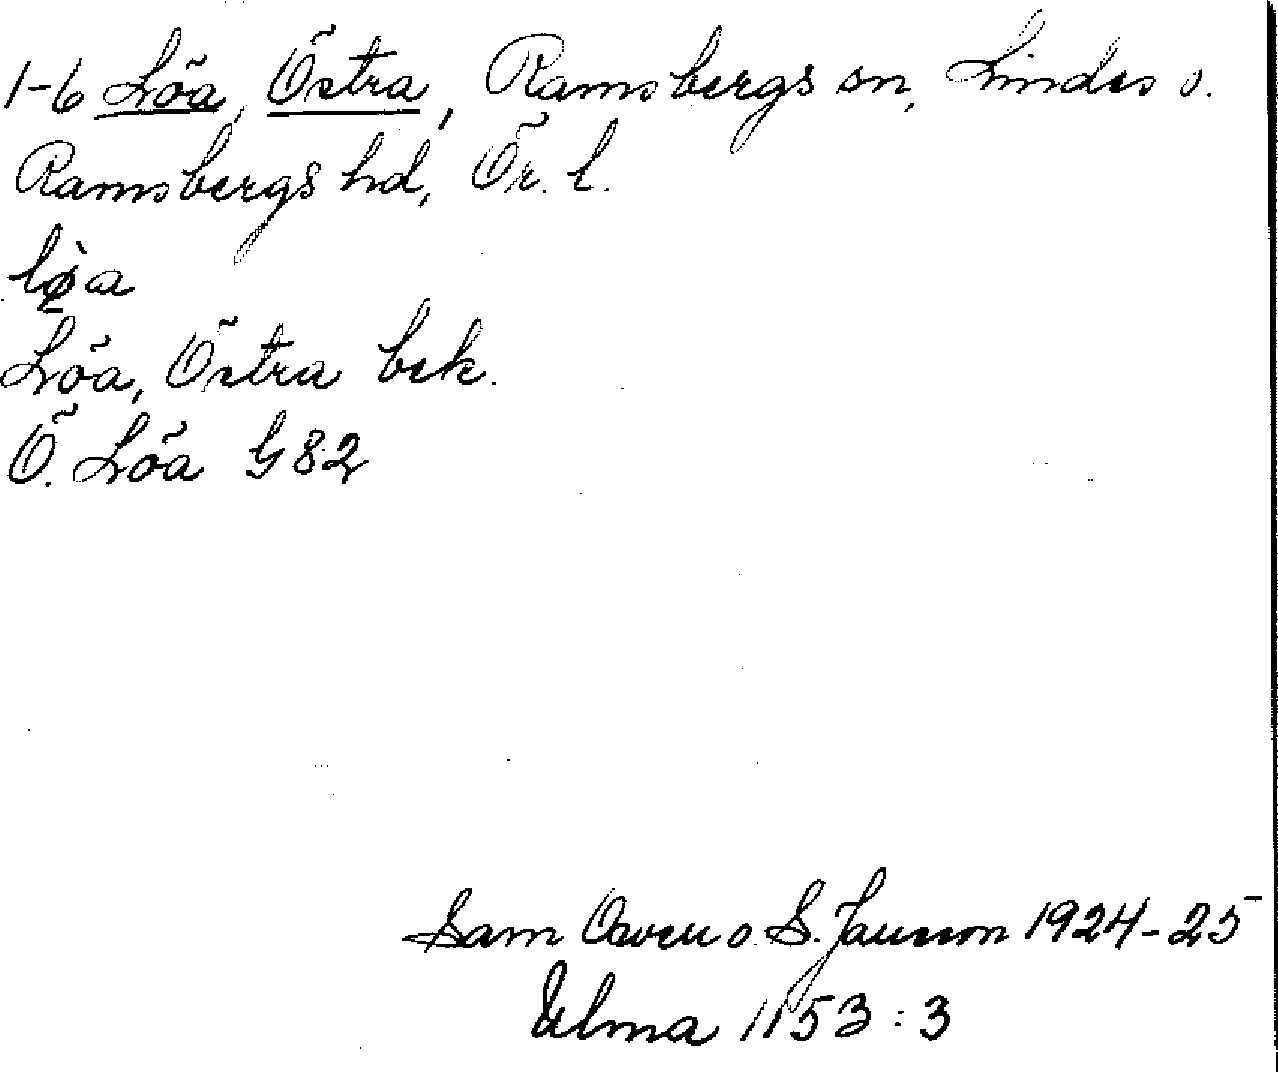 1-6 Löa, Östra, Ramsbergs sn, Lindes o.
Ramsbergs hd, Ör. l.
Löa, Östra bek.
Ö. Löa G82
Sam Owen o. S. Jansson 1924-25
Ulma 1153:3